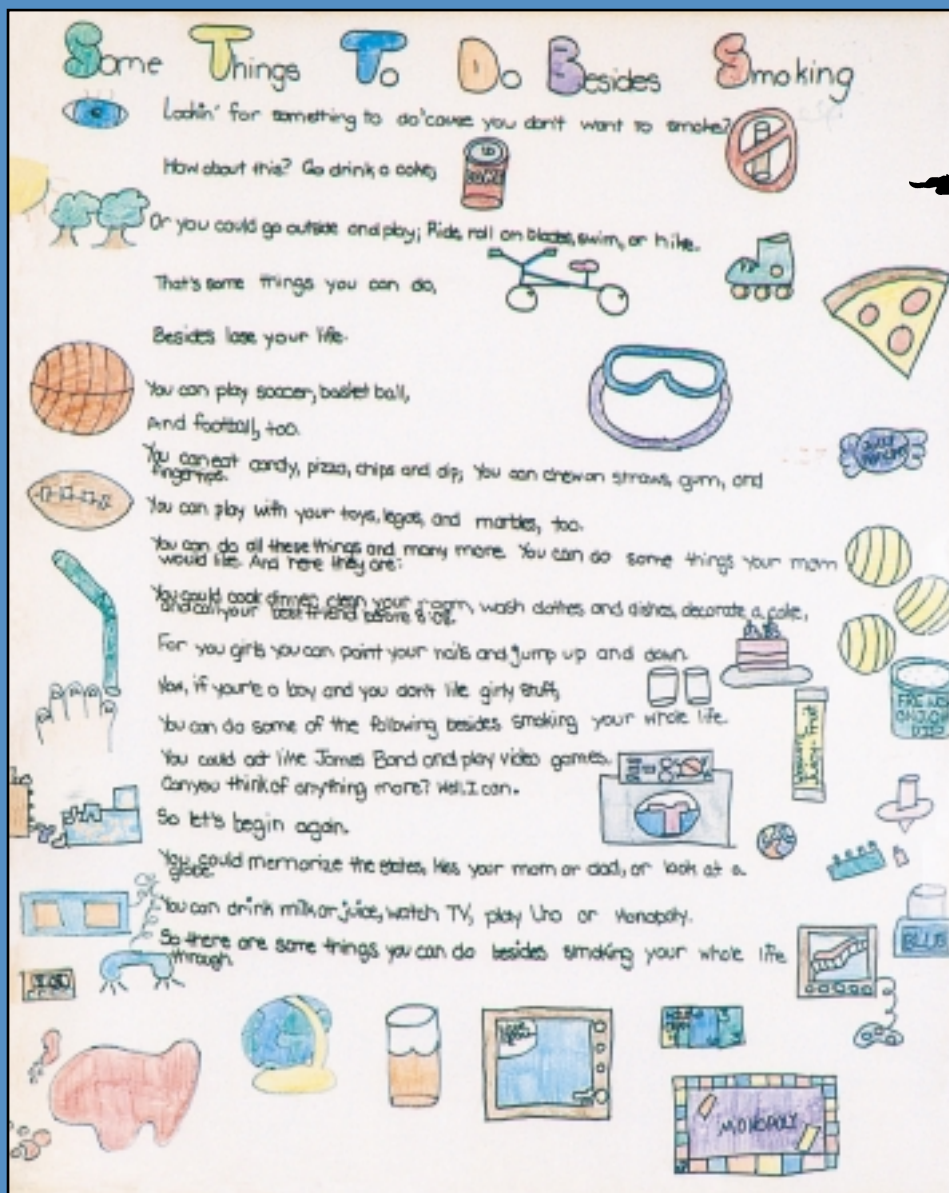 Some Things To Do Besides Smoking
Lookin' for something to do 'cause you don't want to smoke?
How about this? Go drink a coke,
Or you could go outside and play; Ride, roll on blades, swim, or hike.
That's some things you can do,
Besides lose your life.
You can play soccer, basket ball,
And football, too.
You can eat candy, pizza, chips and dip; You can chew on straws, gum, and
fingertips.
You can play with your toys, legos, and marbles, too.
You can do all these things and many more. You can do some things your mom
would like. And here they are:
You could cook dinner, clean your room, wash clothes and dishes, decorate a cake,
and call your best friend before 8:08.
For you girls you can paint your nails and jump up and down.
Now, if you're a boy and you don't like girly stuff,
You can do some of the following besides smoking your whole life.
You could act like James Bond and play video games.
Can you think of anything more? Well, I can.
So let's begin again.
You could memorize the states, kiss your mom or dad, or look at a
globe.
You can drink milk or juice, watch TV, play Uno or Monopoly.
So there are some things you can do besides smoking your whole life
through.
Juicy-Fruit
ONION
DIP
BLUE
MONOPOLY